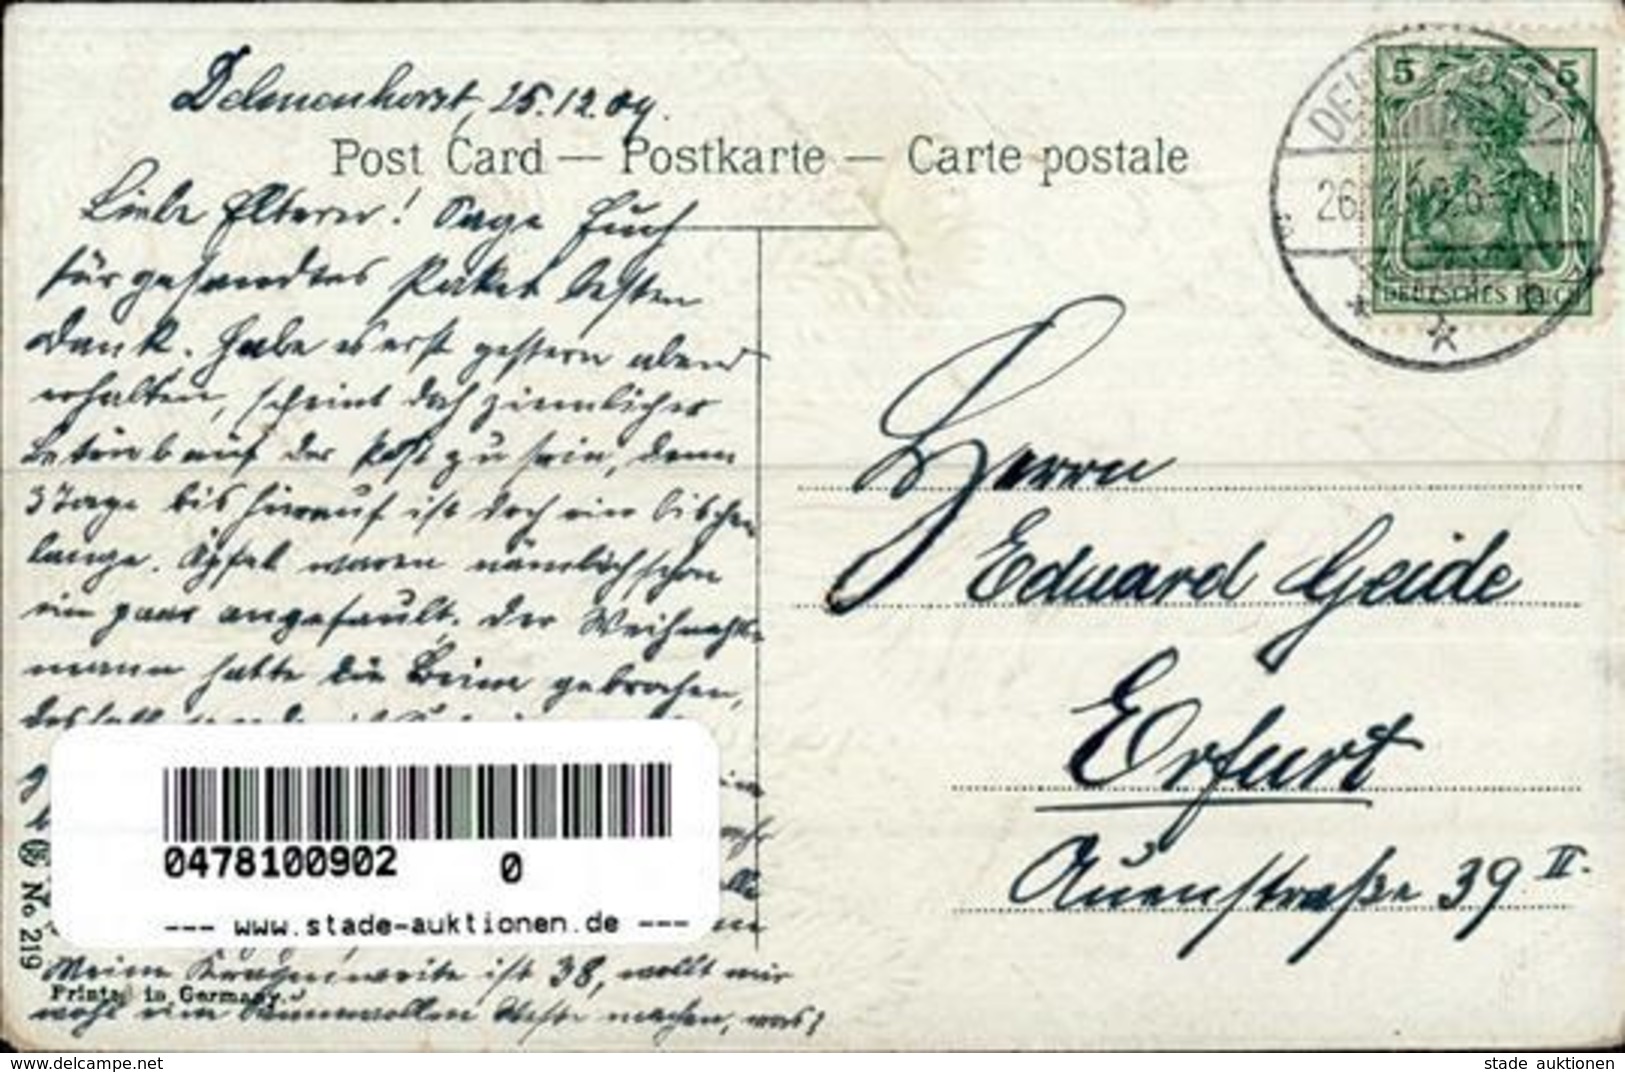 Delmenhorst, 25.12.09.
Post Card — Postkarte — Carte postale
Liebe Eltern! Sage Euch
für gesandtes Paket besten
Dank. Habe es erst gestern abend
erhalten, scheint doch ziemlicher
Betrieb auf der Post zu sein, denn
3 Tage bis hierauf ist doch ein bischen
lange. Äpfel waren nämlich schon
ein paar angefault. Der Weihnachts-
mann hatte die Beine gebrochen,
deshalb
Meine Kragenweite ist 38, wollt mir
wohl eine baumwollene Weste machen, was?
5 5
DEUTSCHES REICH
DELMENHORST
26.12.09.6-7N
Herrn
Eduard Geide
Erfurt
Auenstraße 39 II.
No. 219
Printed in Germany.
0478100902 0
--- www.stade-auktionen.de ---
www.delcampe.net
stade auktionen